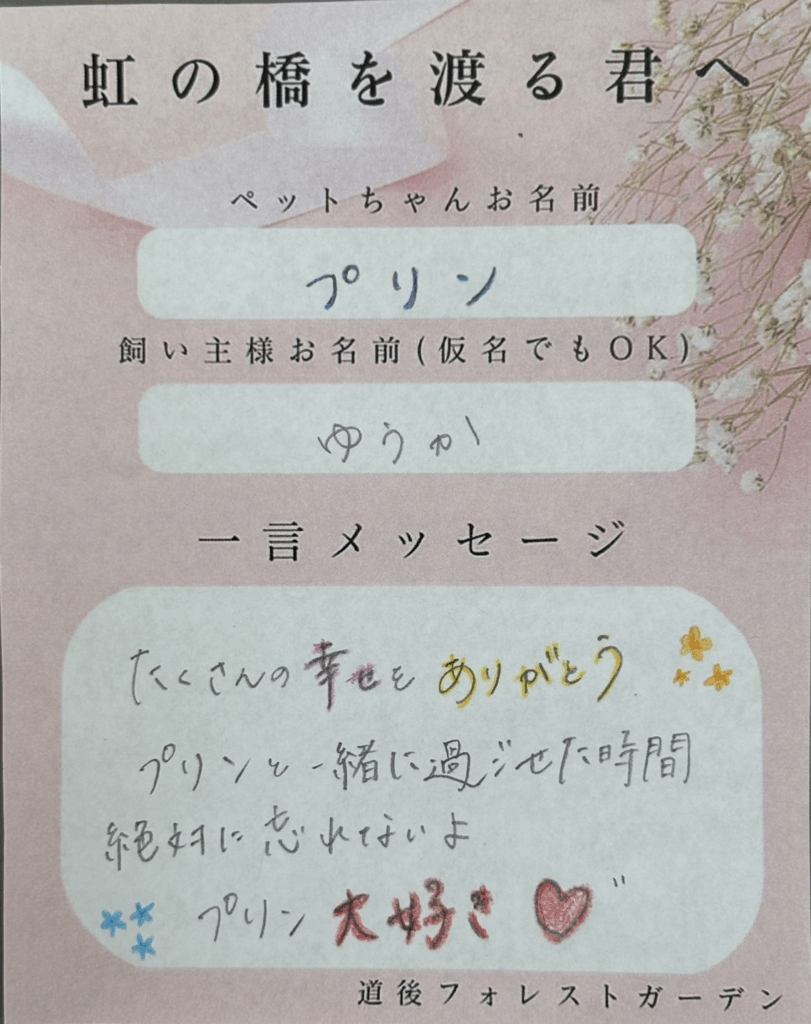 虹の橋を渡る君へ
ペットちゃんお名前
プリン
飼い主様お名前(仮名でもOK)
ゆうか
一言メッセージ
たくさんの幸せを ありがとう
プリンと一緒に過ごせた時間
絶対に忘れてないよ
プリン 大好き
道後フォレストガーデン